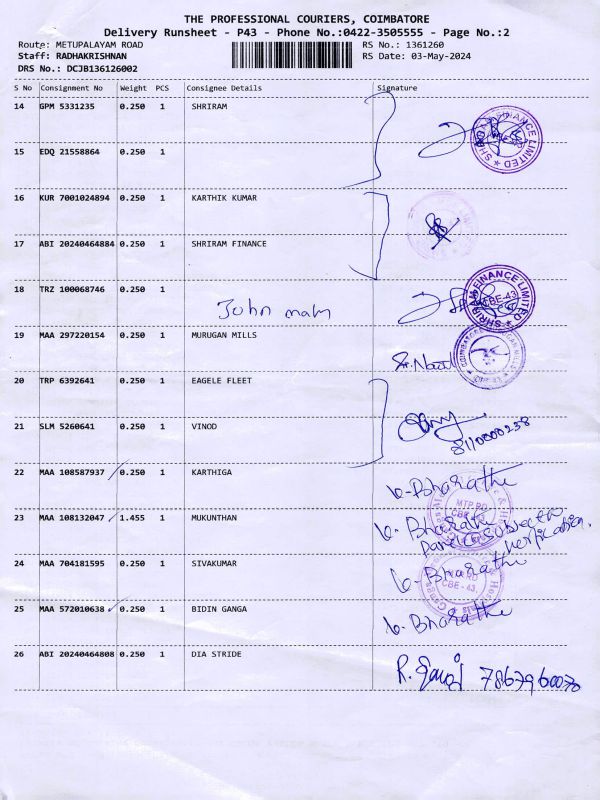 THE PROFESSIONAL COURIERS, COIMBATORE
Delivery Runsheet - P43 - Phone No.:0422-3505555 - Page No.:2
Route: METUPALAYAM ROAD RS No.: 1361260
Staff: RADHAKRISHNAN RS Date: 03-May-2024
DRS No.: DCJB136126002
S No Consignment No Weight PCS Consignee Details Signature
14 GPM 5331235 0.250 1 SHRIRAM
FINANCE LIMITED
15 EDQ 21558864 0.250 1
16 KUR 7001024894 0.250 1 KARTHIK KUMAR
17 ABI 20240464884 0.250 1 SHRIRAM FINANCE
18 TRZ 100068746 0.250 1 John
SHRIRAM FINANCE LIMITED
CBE-43
19 MAA 297220154 0.250 1 MURUGAN MILLS
20 TRP 6392641 0.250 1 EAGELE FLEET
21 SLM 5260641 0.250 1 VINOD
8110000238
22 MAA 108587937 0.250 1 KARTHIGA Bharathi
MTP RD
CBE
23 MAA 108132047 1.455 1 MUKUNTHAN Bharathi
Parcel subject to
verification.
24 MAA 704181595 0.250 1 SIVAKUMAR Bharathi
CBE - 43.
25 MAA 572010638 0.250 1 BIDIN GANGA Bharathi
26 ABI 20240464808 0.250 1 DIA STRIDE 7867960070